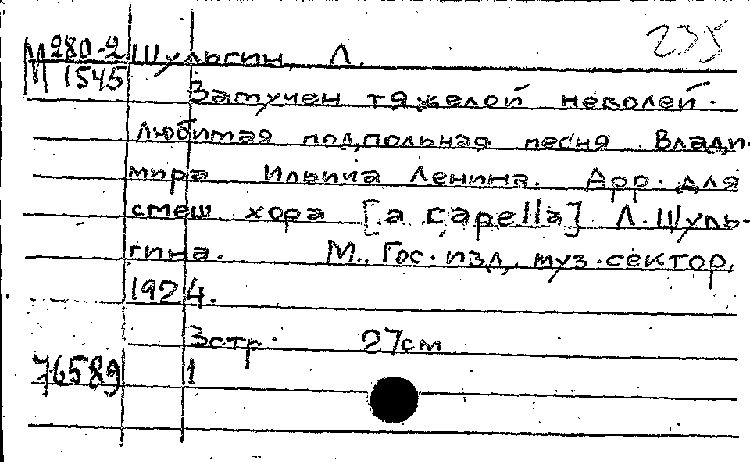 М 280-2 Шульгин, Л. 235
1545
Замучен тяжелой неволей.
Любимая подпольная песня Влади-
мира Ильича Ленина. Арр. для
смеш хора [a capella] Л. Шуль-
гина. М., Гос. изд. муз. сектор,
1924.
3 стр. 27 см
76589 1